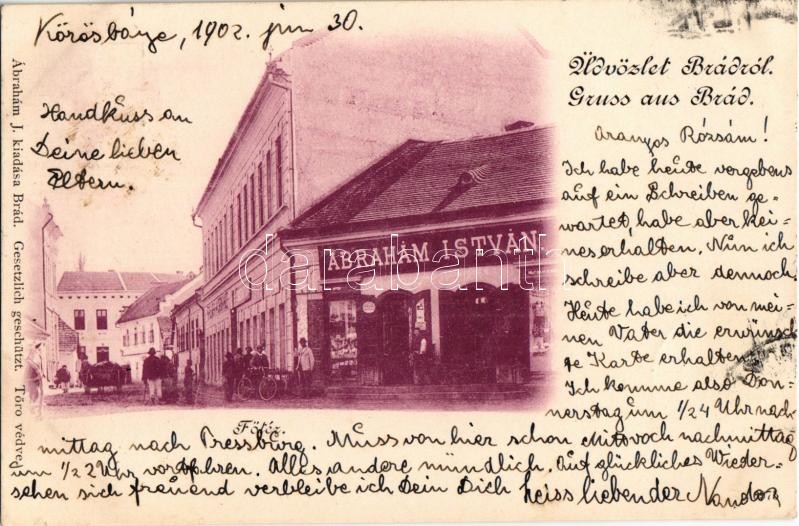 Körösbánya, 1902. jun 30.
Handkuss an
Deine lieben
Eltern.
Üdvözlet Brádról.
Gruss aus Brád.
Aranyos Rózsám!
Ich habe heute vergebens
auf ein Schreiben ge-
wartet, habe aber kei-
nes erhalten. Nun ich
schreibe aber dennoch.
Heute habe ich von mei-
nen Vater die erwünsch-
te Karte erhalten.
Ich komme also Don-
nerstag um 1/24 Uhr nach
mittag nach Pressburg. Muss von hier schon Mittwoch nachmittag
um 1/2 2 Uhr vortfahren. Alles andere mündlich. Auf glückliches Wieder-
sehen sich freuend verbleibe ich Dein Dich heiss liebender Nandor
ÁBRAHÁM ISTVÁN
Főtér.
Ábrahám J. kiadása Brád. Gesetzlich geschützt. Törv. védve
darabanth